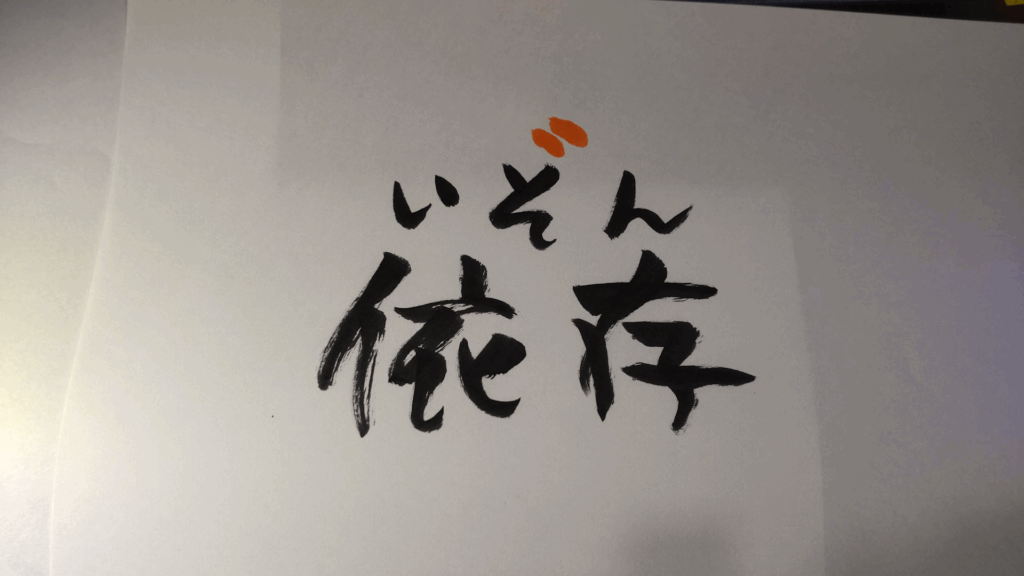 いぞん
依存